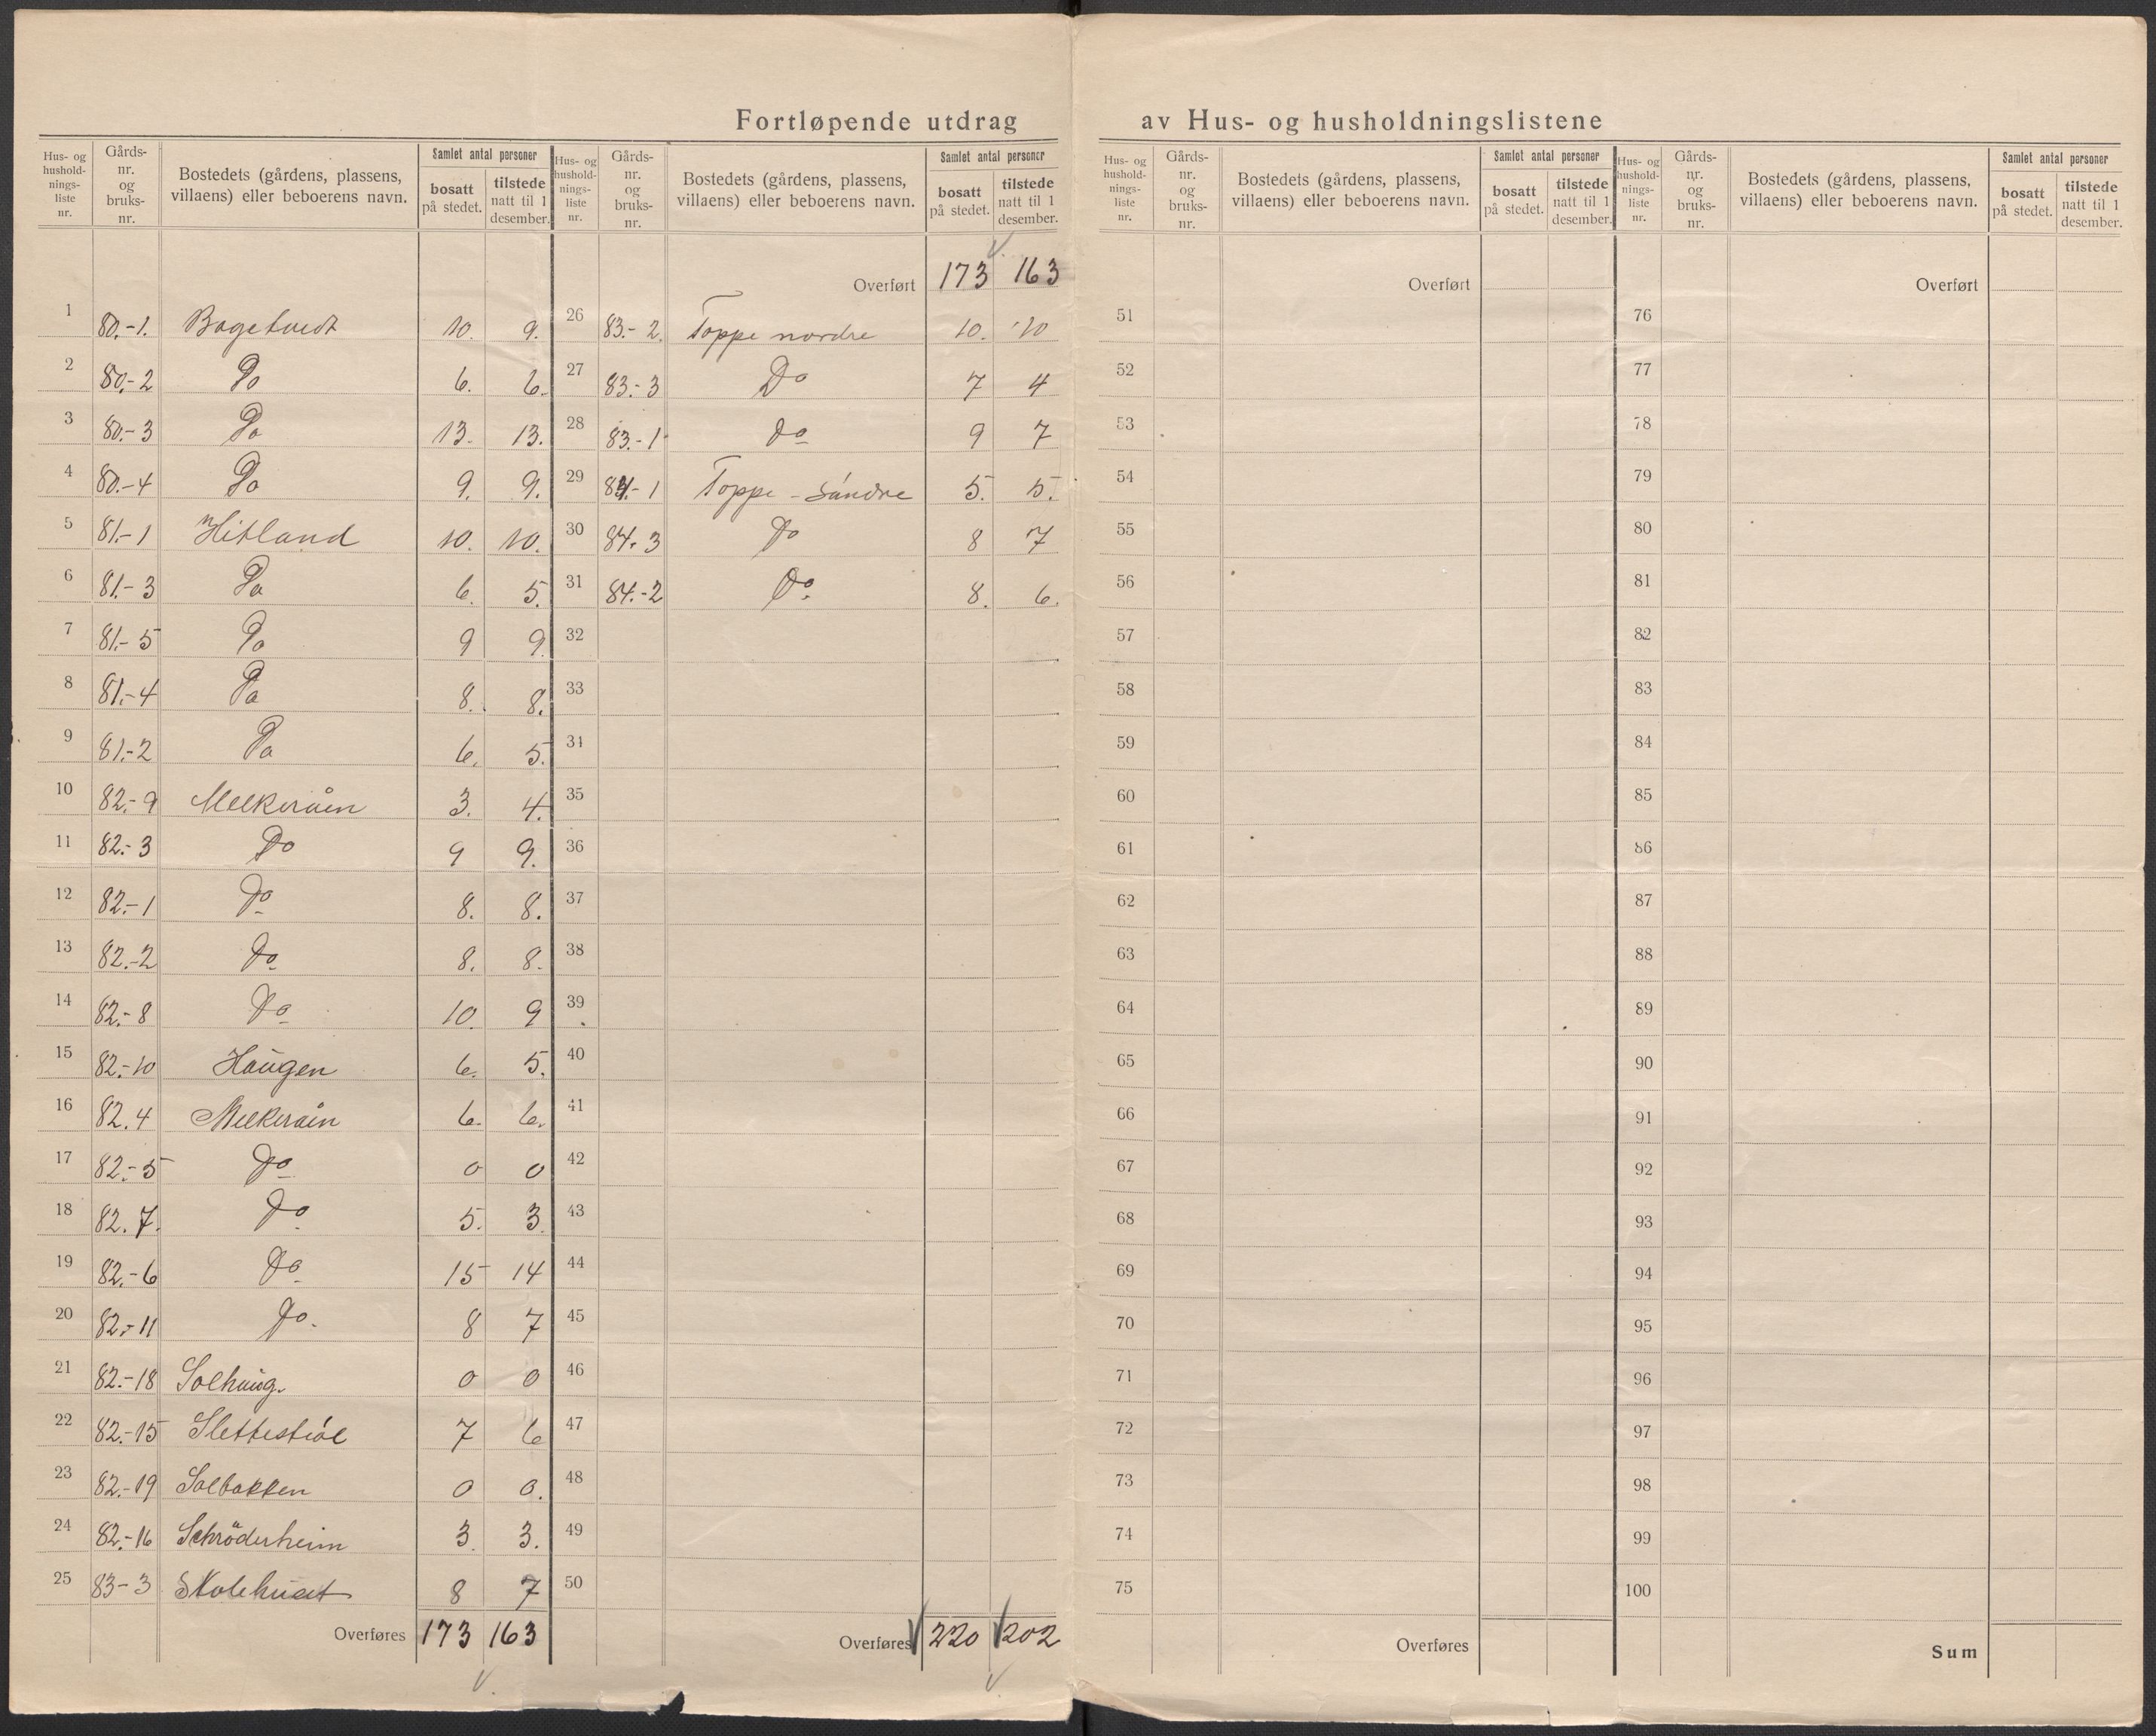 Fortløpende utdrag av Hus- og husholdningslistene
Hus- og hushold-nings-liste nr. Gårds-nr. og bruks-nr. Bostedets (gårdens, plassens, villaens) eller beboerens navn. Samlet antal personer bosatt på stedet. tilstede natt til 1 desember.
1 80.-1. Bogetvedt 10. 9.
2 80.-2 Do 6. 6.
3 80.-3 Do 13. 13.
4 80.-4 Do 9. 9.
5 81.-1 Hitland 10. 10.
6 81.-3 Do 6. 5.
7 81.-5 Do 9 9.
8 81.-4 Do 8. 8.
9 81.-2 Do 6. 5.
10 82.-9 Melkeråen 3. 4.
11 82.-3 Do 9 9.
12 82.-1 Do 8. 8.
13 82.-2 Do 8. 8.
14 82.-8 Do 10. 9
15 82.-10 Haugen 6. 5.
16 82.4 Melkeråen 6. 6.
17 82.-5 Do 0 0
18 82.7. Do 5. 3.
19 82.-6 Do 15 14
20 82.-11 Do. 8 7
21 82.-18 Solhaug. 0 0
22 82.-15 Slettestøl 7 6
23 82.-19 Solbakken 0 0.
24 82.-16 Schröderheim 3. 3.
25 83-3 Skolehuset 8 7
Overføres 173 163
Hus- og hushold-nings-liste nr. Gårds-nr. og bruks-nr. Bostedets (gårdens, plassens, villaens) eller beboerens navn. Samlet antal personer bosatt på stedet. tilstede natt til 1 desember.
Overført 173 163
26 83.-2. Toppe nordre 10. 10
27 83.-3 Do 7 4
28 83.-1 Do 9 7
29 84.-1 Toppe - Søndre 5. 5.
30 84.3 Do 8 7
31 84.-2 Do. 8. 6.
32
33
34
35
36
37
38
39
40
41
42
43
44
45
46
47
48
49
50
Overføres 220 202
Hus- og hushold-nings-liste nr. Gårds-nr. og bruks-nr. Bostedets (gårdens, plassens, villaens) eller beboerens navn. Samlet antal personer bosatt på stedet. tilstede natt til 1 desember.
Overført
51
52
53
54
55
56
57
58
59
60
61
62
63
64
65
66
67
68
69
70
71
72
73
74
75
Overføres
Hus- og hushold-nings-liste nr. Gårds-nr. og bruks-nr. Bostedets (gårdens, plassens, villaens) eller beboerens navn. Samlet antal personer bosatt på stedet. tilstede natt til 1 desember.
Overført
76
77
78
79
80
81
82
83
84
85
86
87
88
89
90
91
92
93
94
95
96
97
98
99
100
Sum